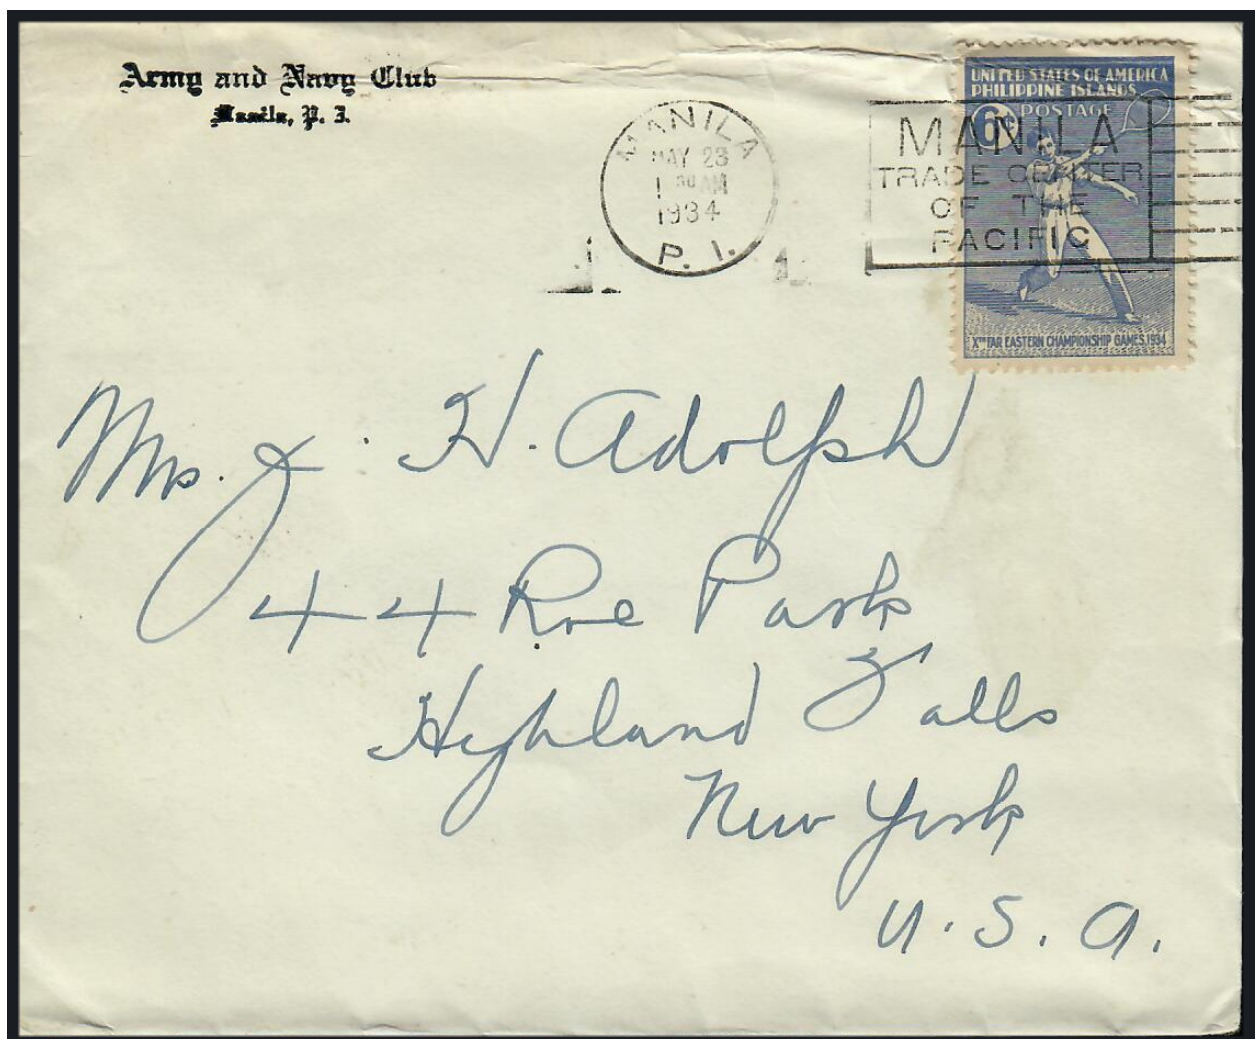 Army and Navy Club
Manila, P. I.
MANILA
MAY 23
1 30 AM
1934
P. I.
MANILA
TRADE CENTER
OF THE
PACIFIC
UNITED STATES OF AMERICA
PHILIPPINE ISLANDS
6¢ POSTAGE
XTH FAR EASTERN CHAMPIONSHIP GAMES, 1934
Mrs. J. H. Adolph
44 Roe Park
Highland Falls
New York
U. S. A.